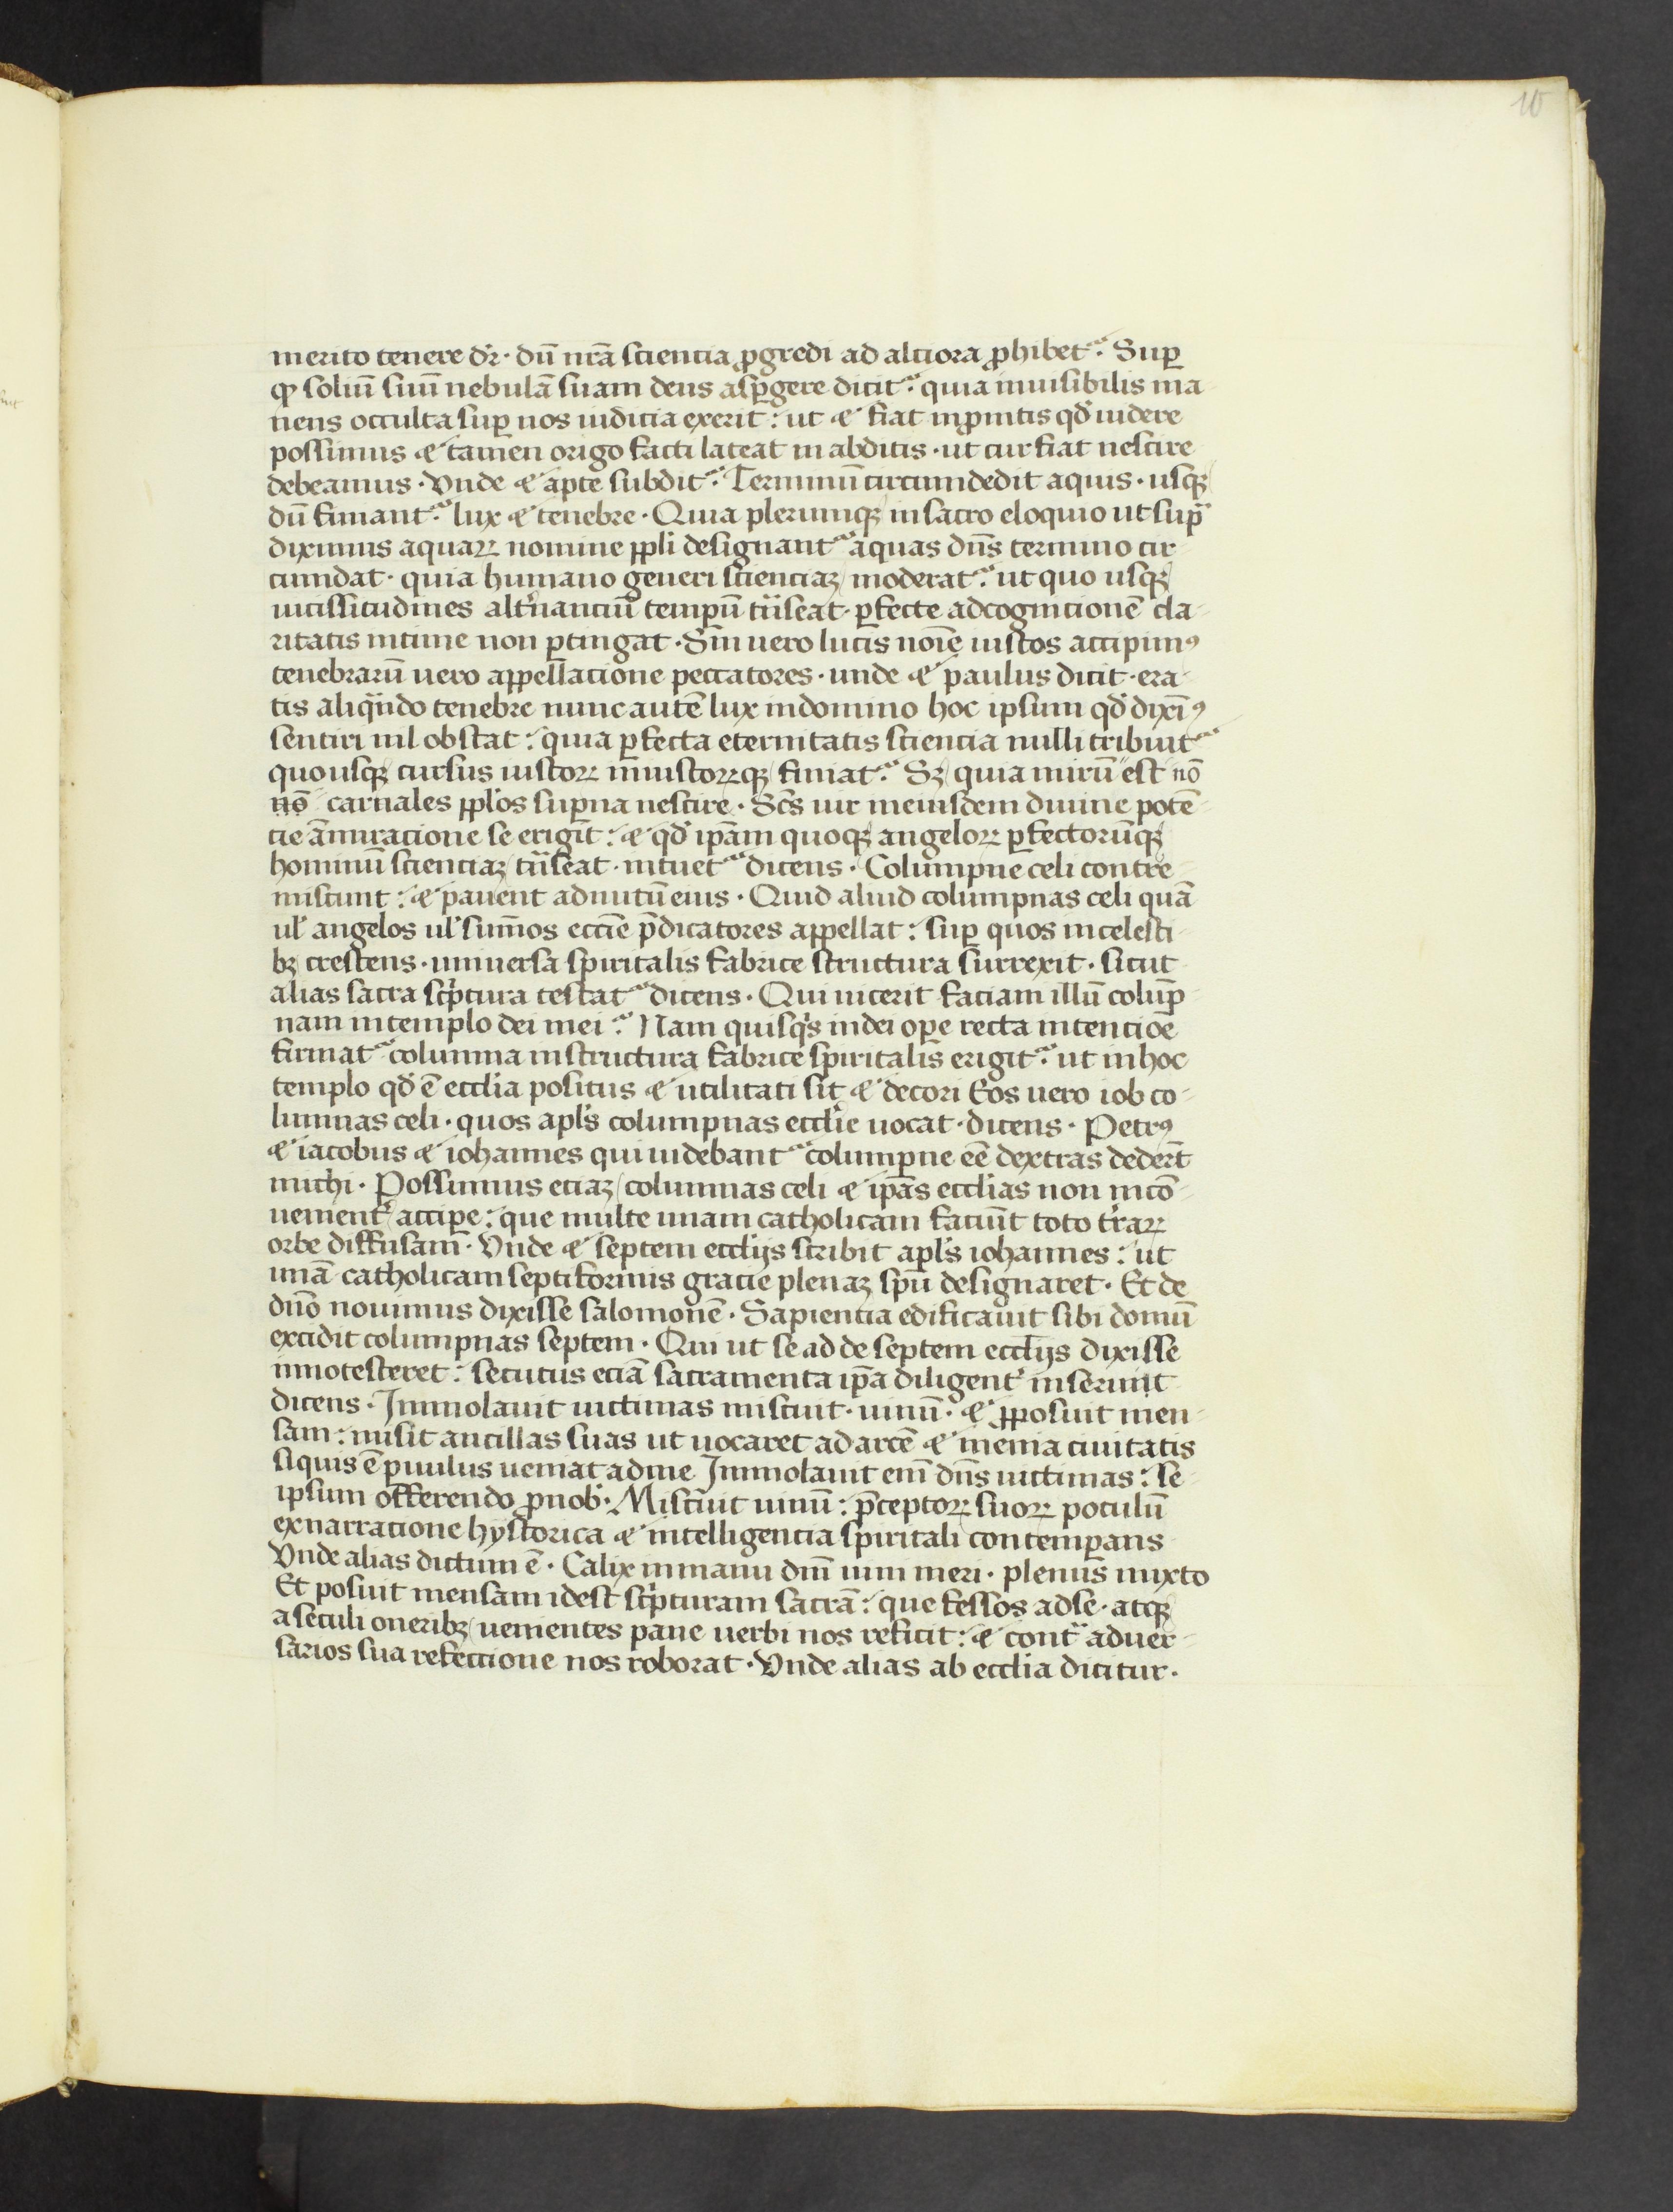 10
merito tenere dr̄· dū nr̄a sciencia ꝓgredi ad alciora ꝓhibet᷑: Suꝑ
qꝫ soliū suū nebulā suam deus asꝑgere dicit᷑: quia inuisibilis ma-
nens occulta suꝑ nos iudicia exerit: ut ⁊ fiat in ꝓmtis qd̓ uidere
possimus ⁊ tamen origo facti lateat in abditis· ut cur fiat nescire
debeamus· Vnde ⁊ apte subdit᷑: Terminū circumdedit aquis· usqꝫ
dū finiant᷑: lux ⁊ tenebre· Quia plerumqꝫ in sacro eloquio ut supᷓ
diximus aquaꝝ nomine ppl̓i designant᷑ aquas dn̄s termino cir-
cumdat· quia humano generi scienciaꝫ moderat᷑: ut quo usqꝫ
uicissitudines alt̓nanciū tempū tᷓnseat· ꝑfecte ad cognicionē cla-
ritatis intime non ꝑtingat· Sin uero lucis noīe iustos accipimꝰ
tenebrarū uero appellacione peccatores· unde ⁊ paulus dicit· era-
tis aliqᷓndo tenebre nunc autē lux in domino hoc ipsum qd̓ dixīꝰ
sentiri nil obstat: quia ꝑfecta eternitatis sciencia nulli tribuit᷑
quousqꝫ cursus iustoꝝ iniustoꝝqꝫ finiat᷑: Sꝫ quia mirū est nō
nō carnales ppl̓os suꝑna nescire· Sc̄s uir in eiusdem diuine potē-
cie āmiracione se erigit: ⁊ qd̓ ip̄am quoqꝫ angeloꝝ ꝑfectorūqꝫ
hominū scienciaꝫ tᷓnseat· intuet᷑ dicens· Columpne celi contre-
miscunt: ⁊ pauent ad nutū eius· Quid aliud columpnas celi quā
ul̓ angelos ul̓ sum̄os ecc̄ie p̄dicatores appellat: suꝑ quos in celesti-
bꝫ crescens· uniuersa spiritalis fabrice structura surrexit· sicut
alias sacra sc̓ptura testat᷑ dicens· Qui uicerit faciam illū colūp-
nam in templo dei mei: Nam quisqͥs in dei oꝑe recta intencioē
firmat᷑ columna in structura fabrice spiritalis erigit᷑: ut in hoc
templo qd̓ ē eccl̓ia positus ⁊ utilitati sit ⁊ decori Eos uero iob co-
lumnas celi· quos apl̓s columpnas eccl̓ie uocat· dicens· Petrꝰ
⁊ iacobus ⁊ iohannes qui uidebant᷑ columpne eē dextras dedert̄
michi· Possumus eciaꝫ columnas celi ⁊ ip̄as eccl̓ias non incō-
uenient̓ accipe: que multe unam catholicam faciūt toto t̓raꝝ
orbe diffusam· Vnde ⁊ septem eccl̓ijs scribit apl̓s iohannes: ut
unā catholicam septiformis gracie plenaꝫ spū designaret· Et de
dn̄o nouimus dixisse salomonē· Sapiencia edificauit sibi domū
excidit columpnas septem· Qui ut se ad de septem eccl̓ijs dixisse
innotesceret: secutus eciā sacramenta ip̄a diligent̓ inseruit
dicens· Immolauit uictimas miscuit· uinū· ⁊ ꝓposuit men-
sam: misit ancillas suas ut uocaret ad arcē ⁊ menia ciuitatis
siquis ē ꝑuulus ueniat ad me Immolauit enī dn̄s uictimas: se-
ipsum offerendo ꝓ nob̓· Miscuit uinū: p̄ceptoꝝ suoꝝ poculū
ex narracione hystorica ⁊ intelligencia spiritali contemperans
Vnde alias dictum ē· Calix in manu dn̄i uini meri· plenus mixto
Et posuit mensam idest sc̓pturam sacrā: que fessos ad se· atqꝫ
a seculi oneribꝫ uenientes pane uerbi nos reficit: ⁊ contᷓ aduer-
sarios sua refeccione nos roborat· Vnde alias ab eccl̓ia dicitur·